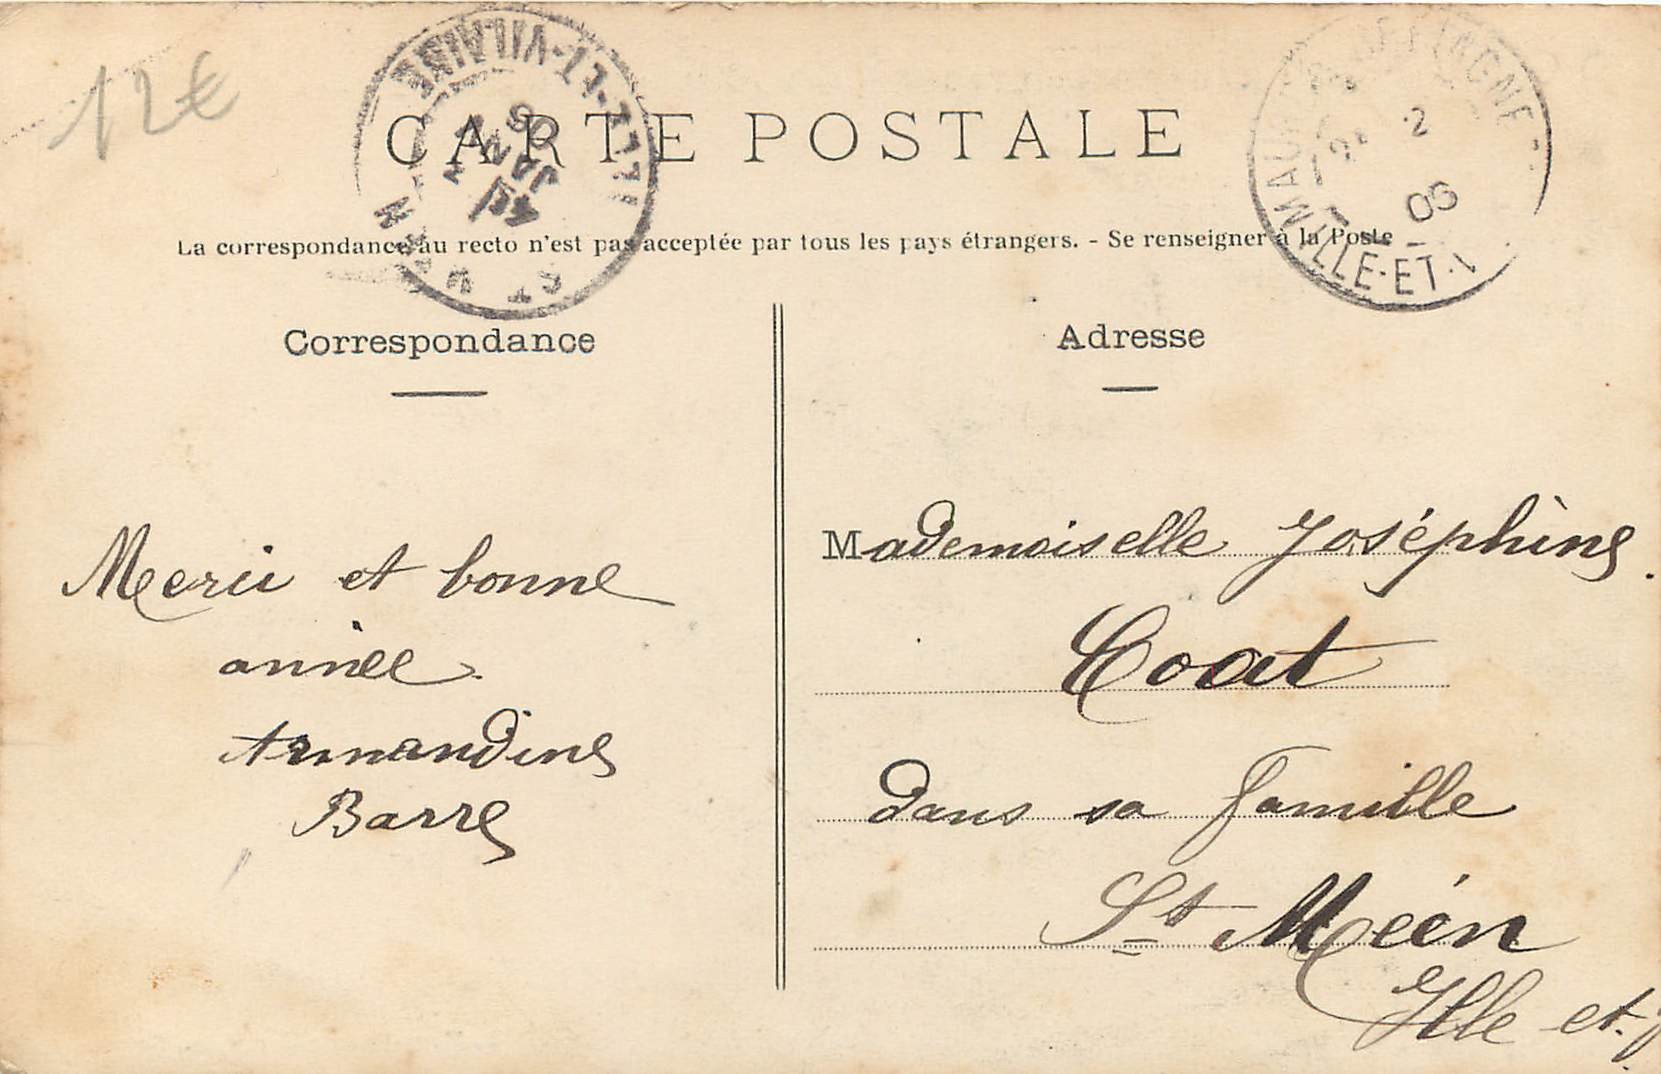 12€
CARTE POSTALE
La correspondance au recto n'est pas acceptée par tous les pays étrangers. - Se renseigner à la Poste
Correspondance
Merci et bonne
année
Armandine
Barre
Adresse
Mademoiselle Joséphine
Coat
dans sa famille
St Méen
Ille et. V
ILLE-ET-VILAINE
3
JANV
06
ST MÉEN
2
06
ILLE-ET-V